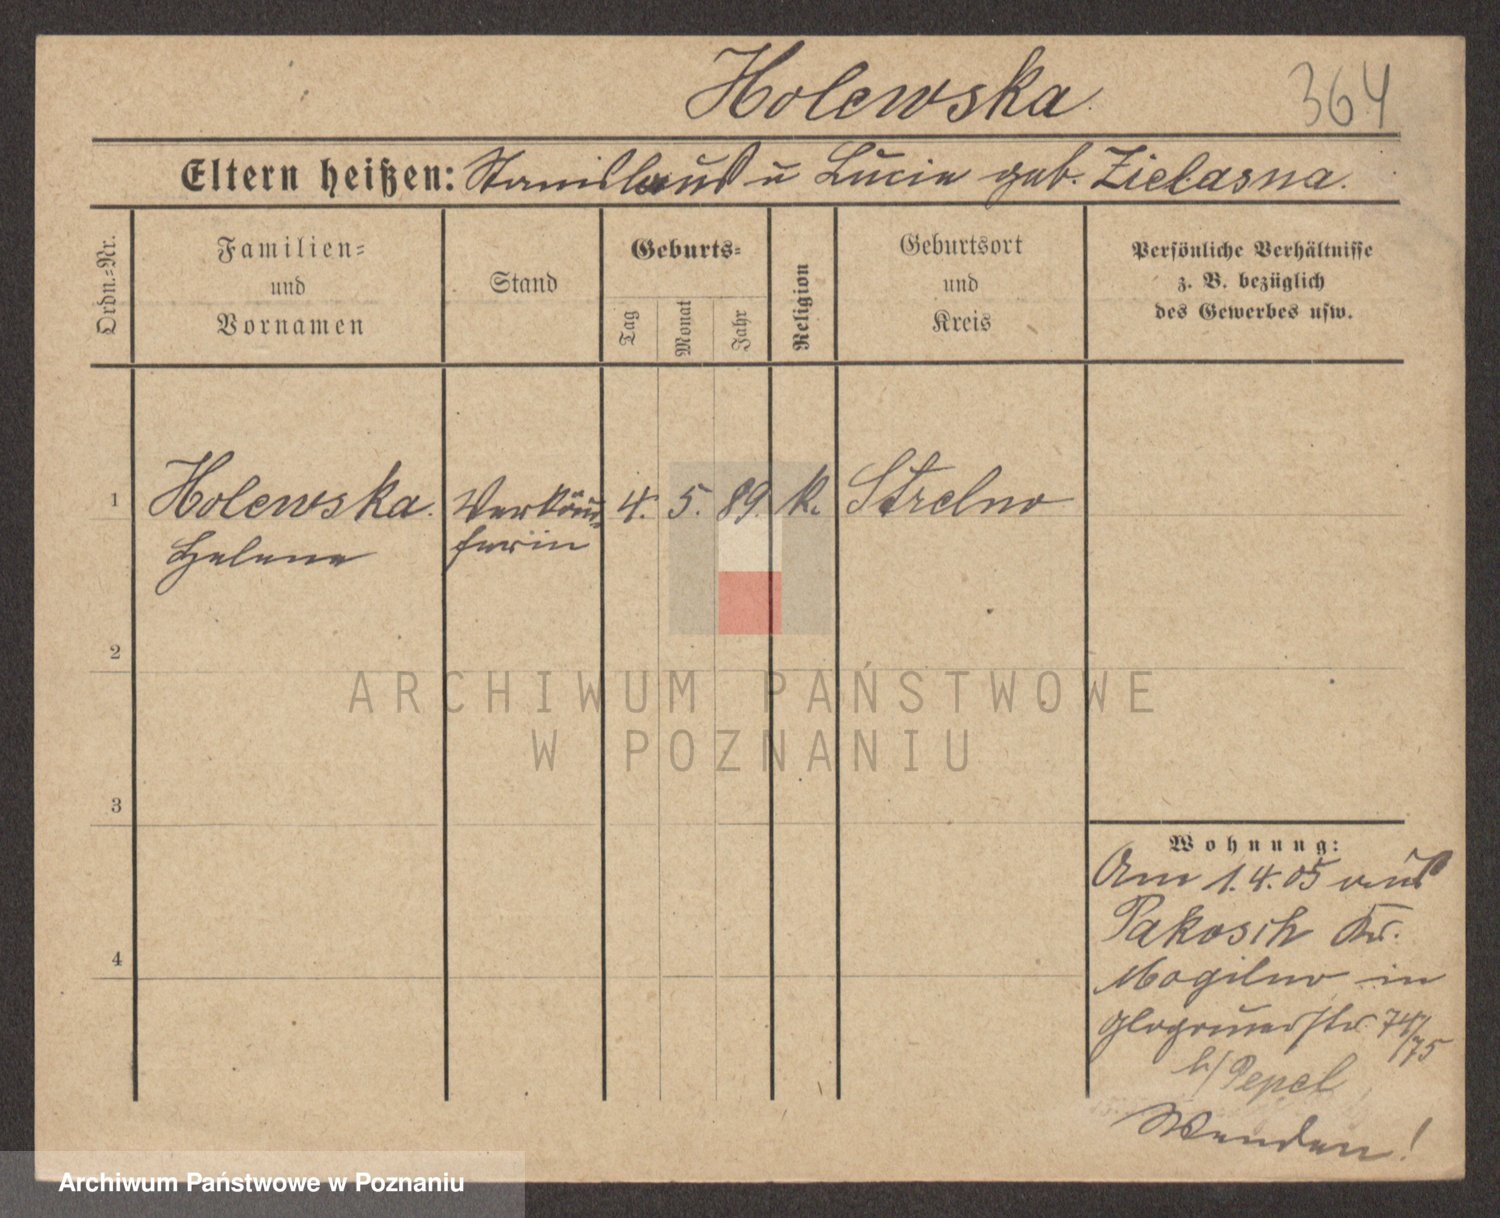 Holewska.
364
Eltern heißen: Stanislaus u Lucie geb. Zielasna.
Ordn.=Nr.
Familien=
und
Vornamen
Stand
Geburts=
Tag
Monat
Jahr
Religion
Geburtsort
und
Kreis
Persönliche Verhältnisse
z. B. bezüglich
des Gewerbes usw.
1 Holewska. Verkäu= 4. 5. 89. k. Strelno
Helene ferin
2
3
4
Wohnung:
Am 1.4.05 aus
Pakosch Kr.
Mogilno in
Glogauerstr. 74/75
b/ Pepel
Wenden!
ARCHIWUM PAŃSTWOWE
W POZNANIU
Archiwum Państwowe w Poznaniu